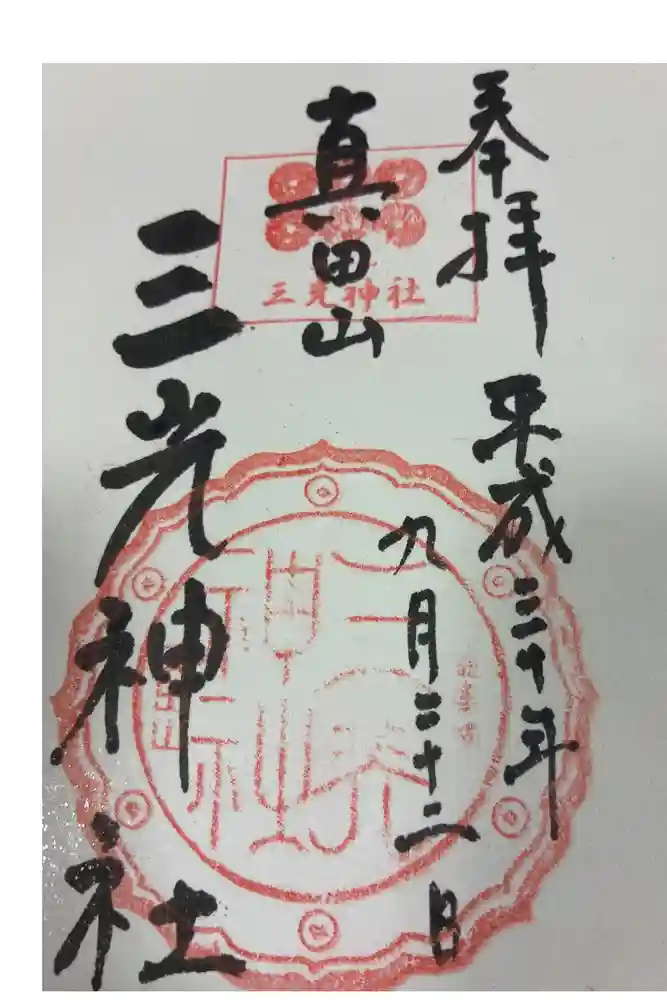 奉拝
平成三十年
九月二十二日
真田山
三光神社
三光神社